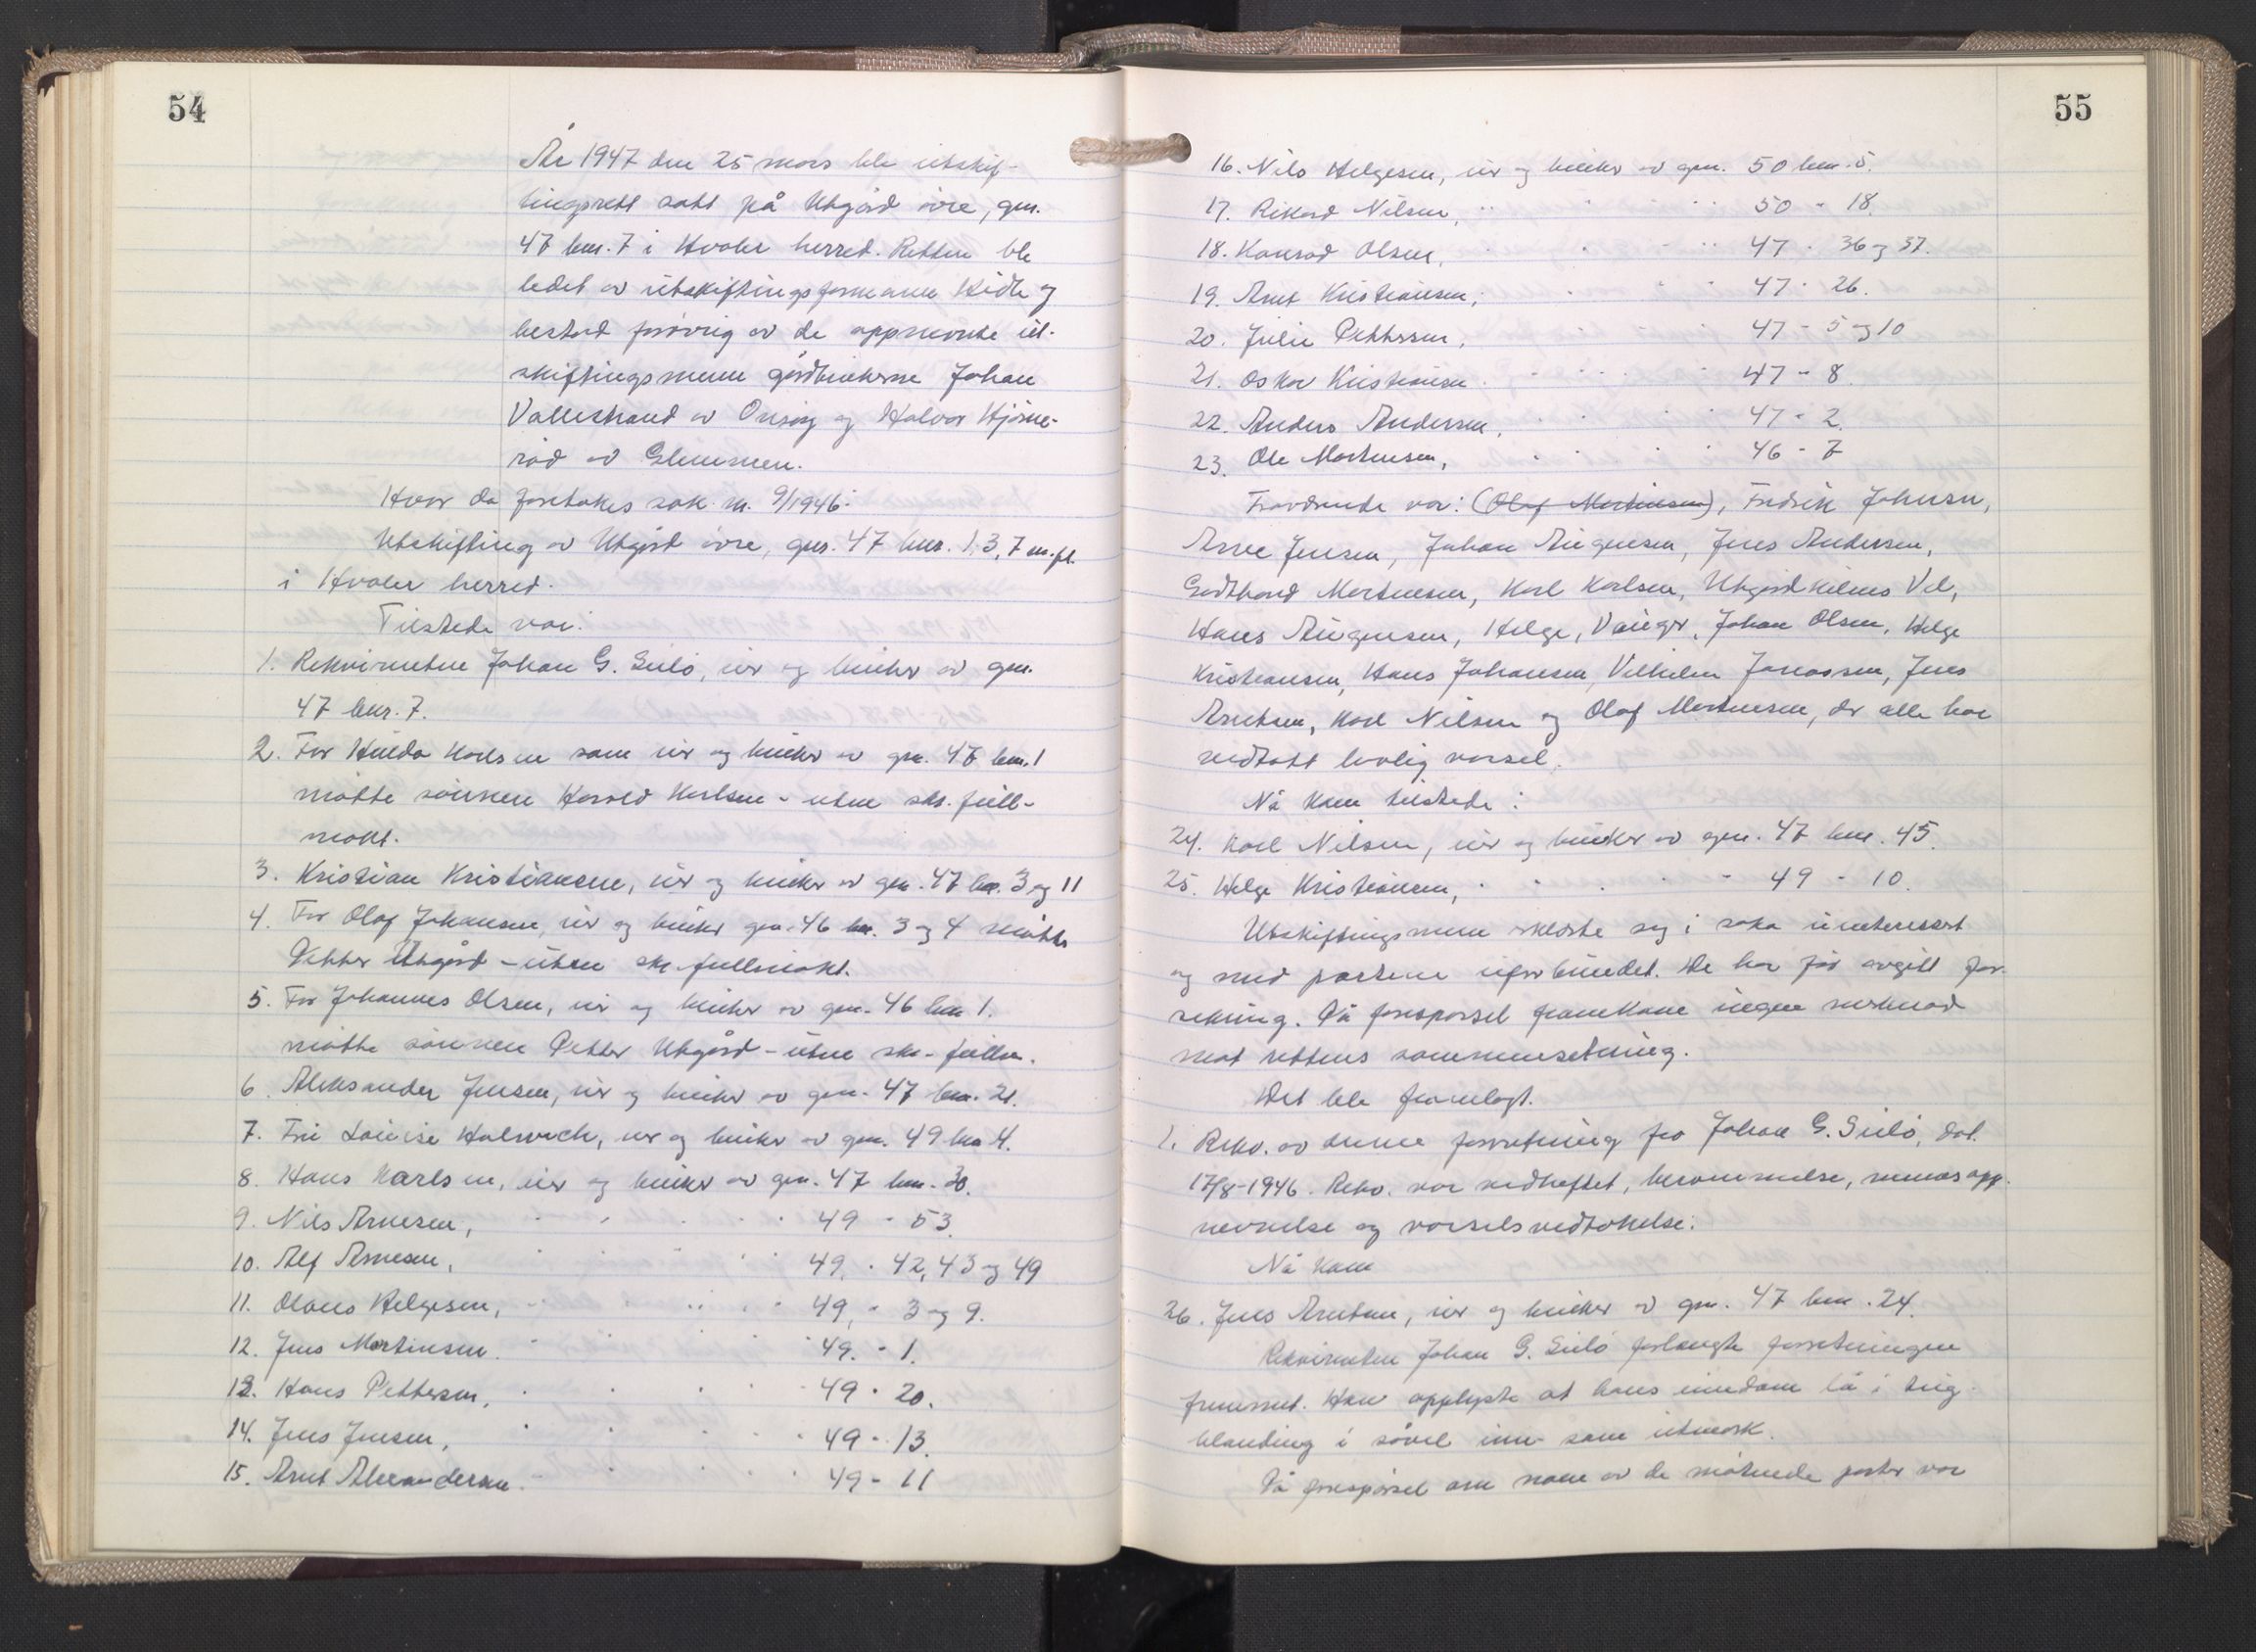 54
År 1947 den 25 mars ble utskif-
tingsrett satt på Utgård øvre, gnr.
47 bnr. 7 i Hvaler herred. Retten ble
ledet av utskiftingsformann Hidle og
bestod forøvrig av de oppnevnte ut-
skiftingsmenn gårdbrukerne Johan
Vallestrand av Onsøy og Halvor Hjørne-
rød av Glemmen.
Hvor da foretokes sak nr. 9/1946:
Utskifting av Utgård øvre, gnr. 47 bnr. 1, 3, 7 m.fl.
i Hvaler herred.
Tilstede var:
1. Rekvirenten Johan G. Sulø, eier og bruker av gnr.
47 bnr. 7.
2. For Hulda Karlsen som eier og bruker av gnr. 47 bnr. 1
møtte sønnen Harald Karlsen - uten skr. full-
makt.
3. Kristian Kristiansen, eier og bruker av gnr. 47 bnr. 3 og 11
4. For Olaf Johansen, eier og bruker gnr. 46 bnr. 3 og 4 møtte
Petter Utgård - uten skr. fullmakt.
5. For Johannes Olsen, eier og bruker av gnr. 46 bnr 1.
møtte sønnen Petter Utgård - uten skr. fullm.
6. Aleksander Jensen, eier og bruker av gnr. 47 bnr. 21.
7. Fru Louise Halvorsen, eier og bruker av gnr. 49 bnr 4.
8. Hans Karlsen, eier og bruker av gnr. 47 bnr. 30.
9. Nils Arnesen, " " " " 49 " 53.
10. Alf Arnesen, " " " " 49, " 42, 43 og 49
11. Olaus Helgesen, " " " " 49, " 3 og 9.
12. Jens Martinsen. " " " " 49. " 1.
13. Hans Pettersen, " " " " 49 " 20.
14. Jens Jensen, " " " " 49 " 13.
15. Arnt Alexandersen. " " " " 49 - 11
55
16. Nils Helgesen, eier og bruker av gnr. 50 bnr. 5.
17. Rikard Nilsen, " " " " 50 " 18.
18. Konrad Olsen, " " " " 47 " 36 og 37.
19. Arnt Kristiansen, " " " " 47 " 26.
20. Julie Pettersen, " " " " 47 - 5 og 10
21. Oskar Kristiansen " " " " 47 - 8
22. Anders Andersen, " " " " 47 - 2.
23. Ole Martinsen, " " " " 46 - 7
Fraværende var: (Olaf Martinsen), Fredrik Johnsen,
Arne Jensen, Johan Augunsen, Jens Andersen,
Godthard Mortensen, Karl Karlsen, Utgårdkilens Vel,
Hans Augunsen, Helge, Vauger, Johan Olsen, Helge
Kristiansen, Hans Johansen, Vilhelm Jonassen, Jens
Arntsen, Karl Nilsen og Olaf Martinsen, der alle har
vedtatt lovlig varsel.
Nå kom tilstede:
24. Karl Nilsen, eier og bruker av gnr. 47 bnr. 45.
25. Helge Kristiansen, " " " " 49 - 10.
Utskiftingsmenn erklærte seg i saka uinteressert
og med partene uforbundet. De har før avgitt for-
sikring. På forespørsel framkom ingen merknad
mot rettens sammensetning.
Det ble framlagt.
1. Rekv. av denne forretning fra Johan G. Sulø, dat.
17/8-1946. Rekv. var vedheftet, berammelse, mennsopp-
nevnelse og varselsvedtakelse.
Nå kom
26. Jens Arntsen, eier og bruker av gnr. 47 bnr. 24.
Rekvirenten Johan G. Sulø forlangte forretningen
fremmet. Han opplyste at hans eiendom lå i teig-
blanding i såvel inn- som utmark.
På forespørsel om noen av de møtende parter var